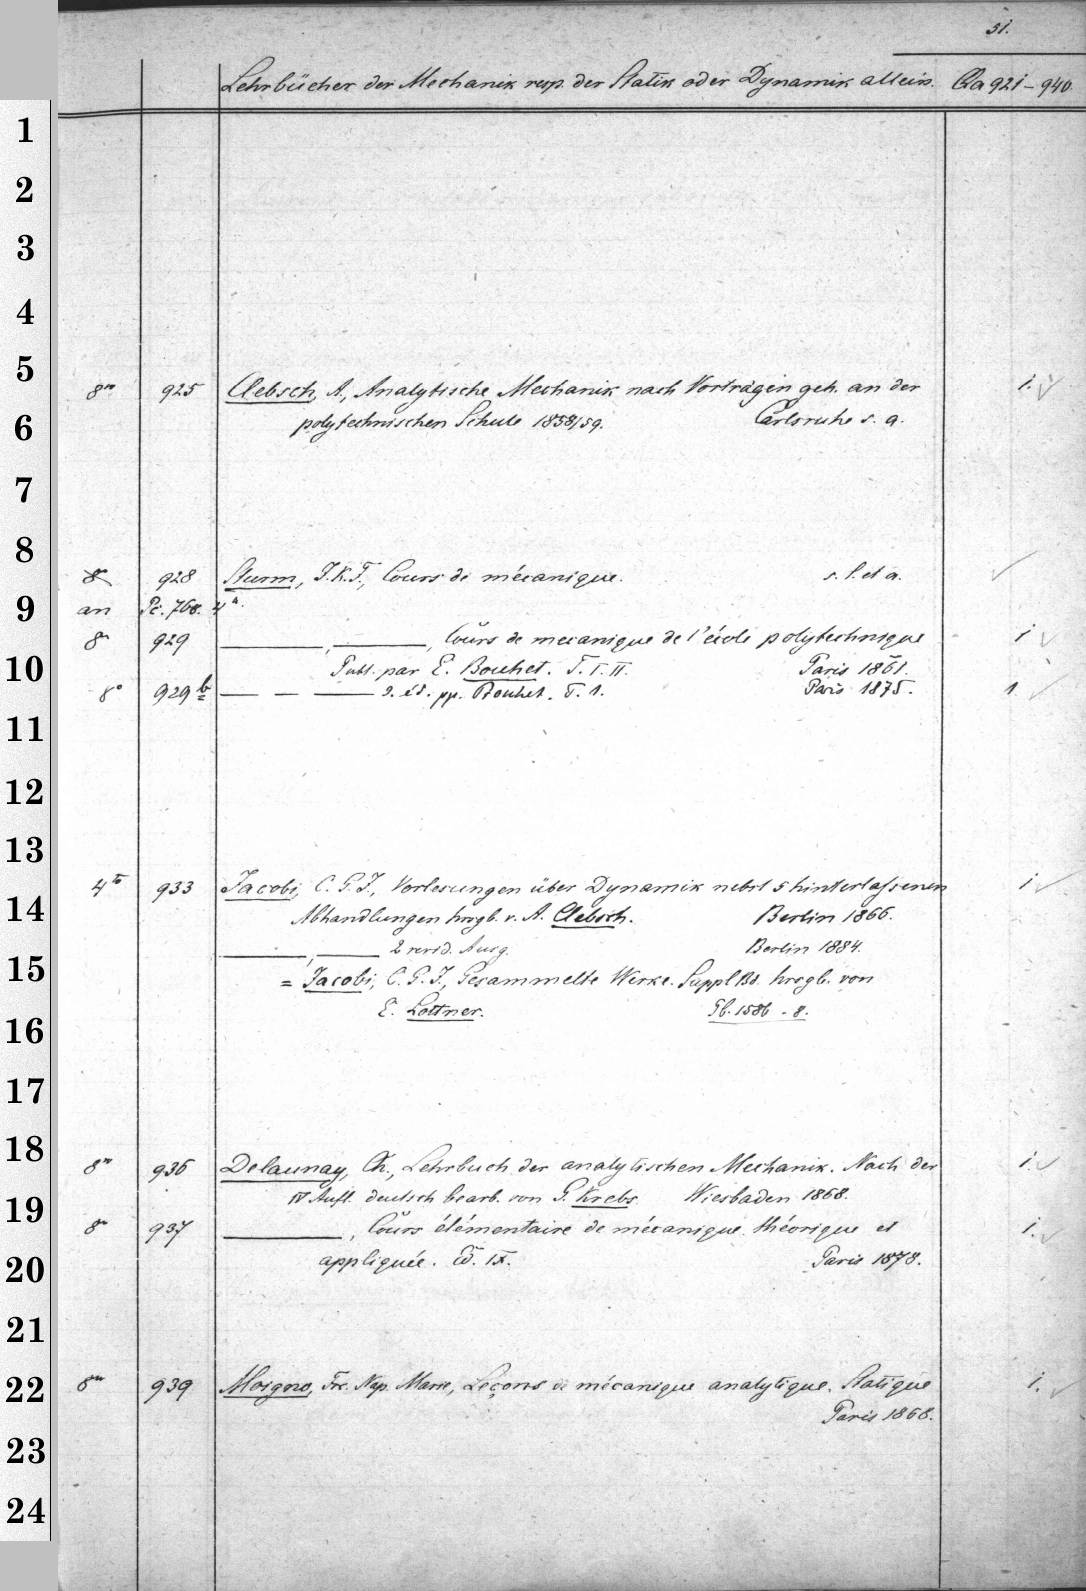 51.
Lehrbücher der Mechanik resp. der Statik oder Dynamik allein. Qa 921–940.
1
2
3
4
5
8vo 925 Clebsch, A., Analytische Mechanik nach Vorträgen geh. an der 1.
6
polytechnischen Schule 1858/59. Carlsruhe s. a.
7
8
8o 928 Sturm, J.K.F., Cours de mécanique. s. l. et a.
9
an Pc. 768. 4a.
8o 929 ———, ———, Cours de mecanique de l'école polytechnique 1
10
Publ. par E. Bouhet. T. I. II. Paris 1861.
8o 929 b — — — 2. éd. pp. Bouhet. T. 1. Paris 1875. 1
11
12
13
4to 933 Jacobi, C. G. J., Vorlesungen über Dynamik nebst 5 hinterlassenen 1
14
Abhandlungen hrsgb. v. A. Clebsch. Berlin 1866.
———, ——— 2 revid. Ausg. Berlin 1884.
15
= Jacobi, C. G. J., Gesammelte Werke. Suppl Bd. hrsgb. von
16
E. Lottner. Gb. 1586 - 8.
17
18
8vo 936 Delaunay, Ch., Lehrbuch der analytischen Mechanik. Nach der 1.
19
IV Aufl. deutsch bearb. von G. Krebs. Wiesbaden 1868.
8o 937 ———, Cours élémentaire de mécanique théorique et 1.
20
appliquée. Ed. IX. Paris 1878.
21
22
8vo 939 Moigno, Frc. Nap. Marie, Leçons de mécanique analytique. Statique 1.
Paris 1868.
23
24